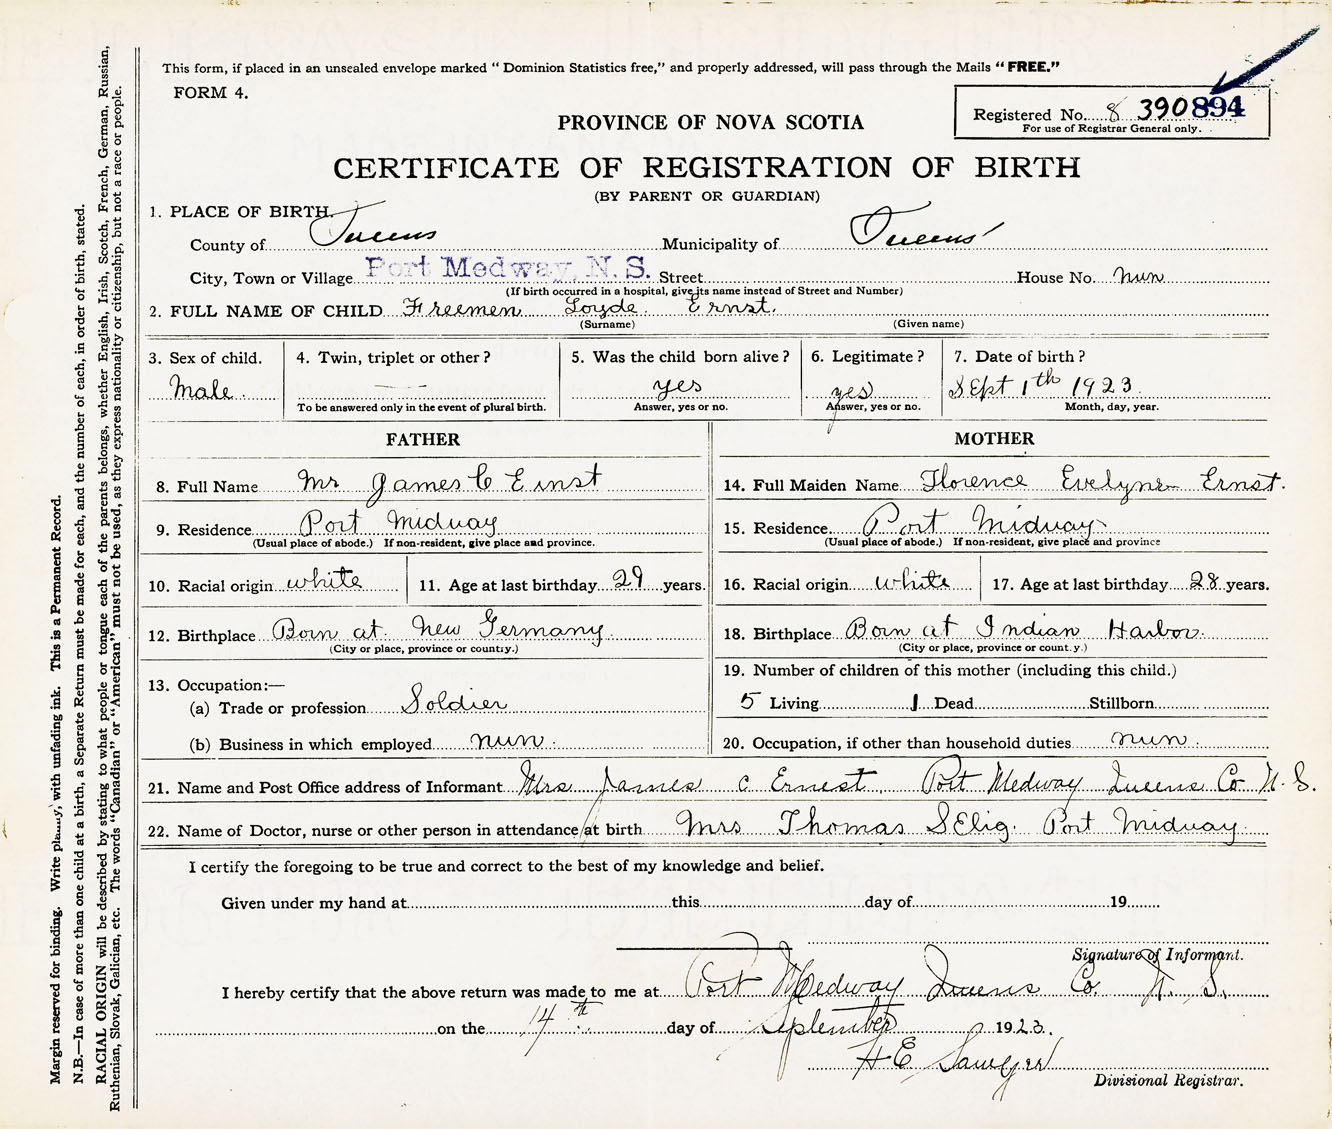 This form, if placed in an unsealed envelope marked “ Dominion Statistics free,” and properly addressed, will pass through the Mails “ FREE.”
FORM 4.
Registered No. 8 390 894
For use of Registrar General only.
PROVINCE OF NOVA SCOTIA
CERTIFICATE OF REGISTRATION OF BIRTH
(BY PARENT OR GUARDIAN)
1. PLACE OF BIRTH.
County of Queens Municipality of Queens
City, Town or Village Port Medway, N. S. Street House No. nun
(If birth occurred in a hospital, give its name instead of Street and Number)
2. FULL NAME OF CHILD Freemen Loyde Ernst.
(Surname) (Given name)
3. Sex of child. 4. Twin, triplet or other ? 5. Was the child born alive ? 6. Legitimate ? 7. Date of birth ?
Male. — yes yes Sept 1th 1923.
To be answered only in the event of plural birth. Answer, yes or no. Answer, yes or no. Month, day, year.
FATHER MOTHER
8. Full Name Mr James C Ernst 14. Full Maiden Name Florence Evelyne Ernst.
9. Residence Port Midway 15. Residence Port Midway
(Usual place of abode.) If non-resident, give place and province. (Usual place of abode.) If non-resident, give place and province
10. Racial origin white 11. Age at last birthday 29 years. 16. Racial origin white 17. Age at last birthday 28 years.
12. Birthplace Born at New Germany. 18. Birthplace Born at Indian Harbor.
(City or place, province or country.) (City or place, province or count.y.)
19. Number of children of this mother (including this child.)
13. Occupation:—
(a) Trade or profession Soldier 5 Living 1 Dead Stillborn
(b) Business in which employed nun. 20. Occupation, if other than household duties nun.
21. Name and Post Office address of Informant Mrs James C Ernest. Port Medway Queens Co N. S.
22. Name of Doctor, nurse or other person in attendance at birth Mrs Thomas SElig. Port Midway.
I certify the foregoing to be true and correct to the best of my knowledge and belief.
Given under my hand at this day of 19
Signature of Informant.
I hereby certify that the above return was made to me at Port Medway Queens Co. N. S.
on the 14th day of September 1923.
H E Sawyer
Divisional Registrar.
Margin reserved for binding. Write plainly, with unfading ink. This is a Permanent Record.
N.B.—In case of more than one child at a birth, a Separate Return must be made for each, and the number of each, in order of birth, stated.
RACIAL ORIGIN will be described by stating to what people or tongue each of the parents belongs, whether English, Irish, Scotch, French, German, Russian,
Ruthenian, Slovak, Galician, etc. The words “Canadian” or “American” must not be used, as they express nationality or citizenship, but not a race or people.